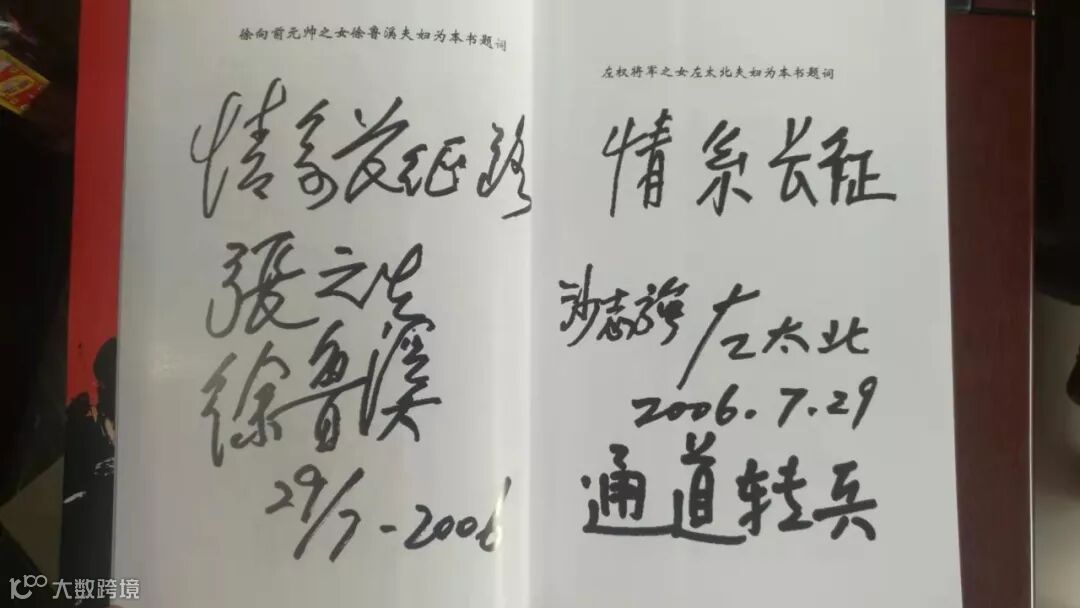 徐向前元帅之女徐鲁溪夫妇为本书题词
情系长征路
張
徐鲁溪
29/7-2006
左权将军之女左太北夫妇为本书题词
情系长征
沙志強 左太北
2006.7.29
通道转兵
大数跨境